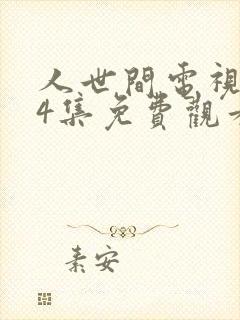 人世間電視
4集免費觀
素安